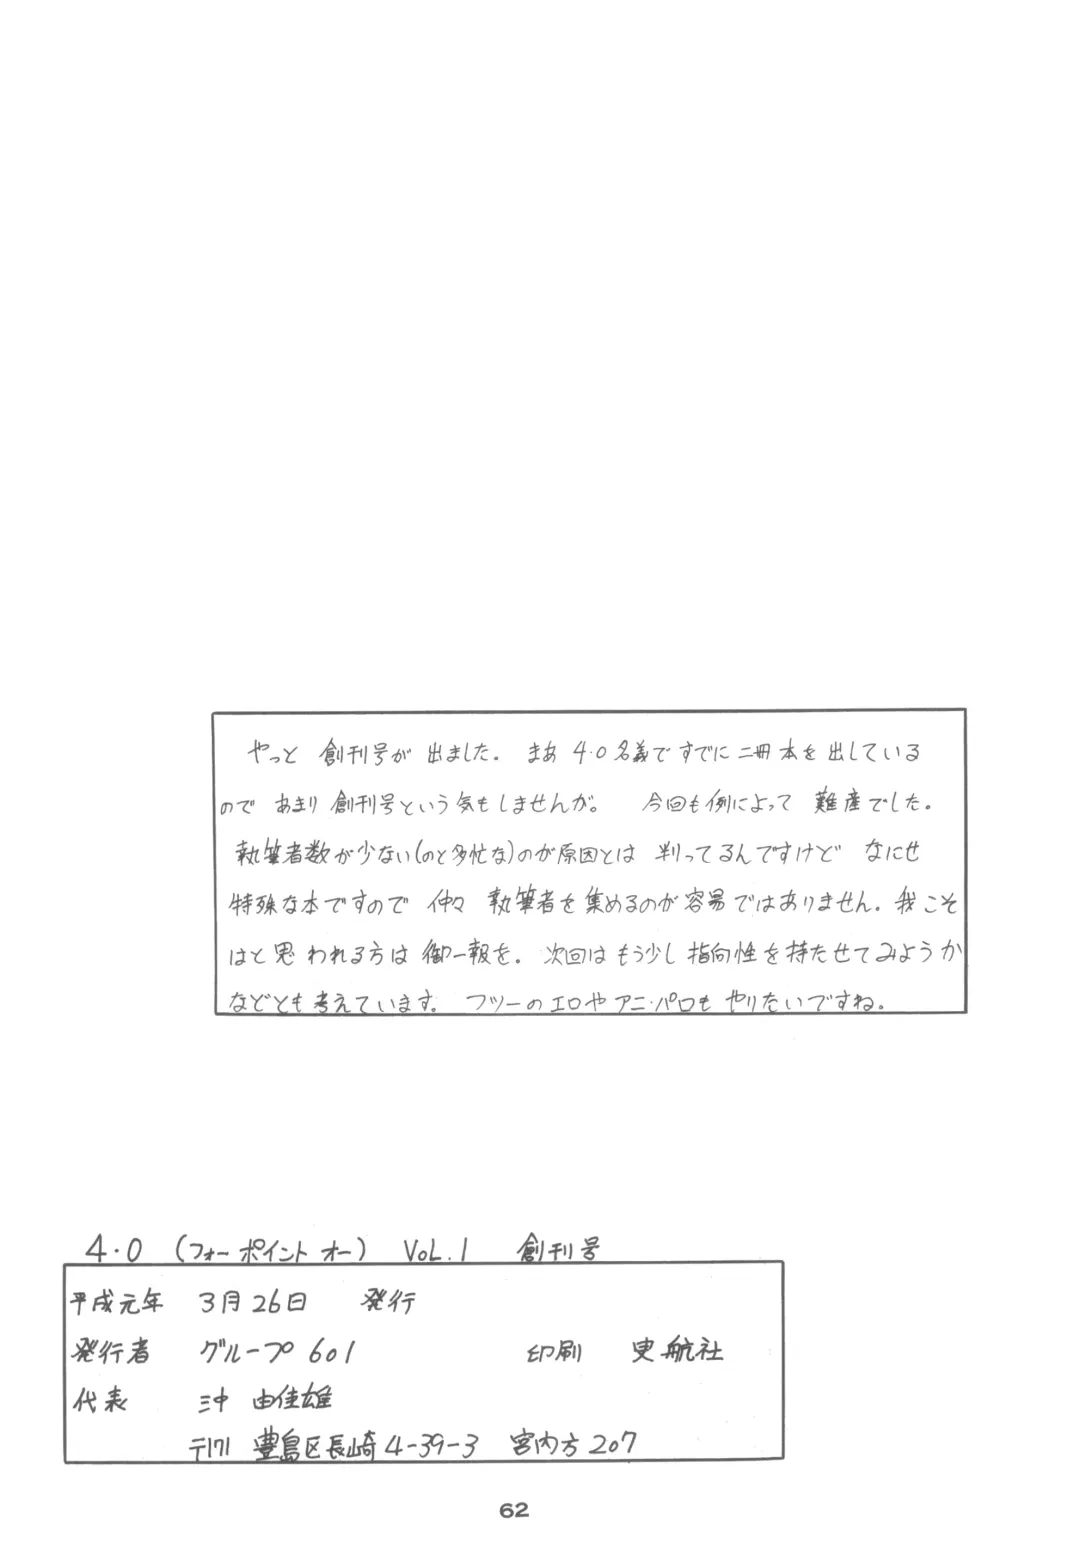 やっと 創刊号が 出ました。 まあ 4.0名義で すでに 二冊 本を 出している
ので あまり 創刊号という 気も しませんが。 今回も例によって 難産でした。
執筆者数が少ない(のと多忙な)のが原因とは 判ってるんですけど なにせ
特殊な本ですので 仲々 執筆者を 集めるのが容易ではありません。我こそ
はと 思われる方は 御一報を。 次回は もう少し 指向性を 持たせてみようか
などとも 考えています。 フツーのエロや アニ・パロも やりたいですね。
4.0 (フォー ポイント オー) VOL.1 創刊号
平成元年 3月26日 発行
発行者 グループ601 印刷 史航社
代表 沖 由佳雄
〒171 豊島区長崎4-39-3 宮内方207
62